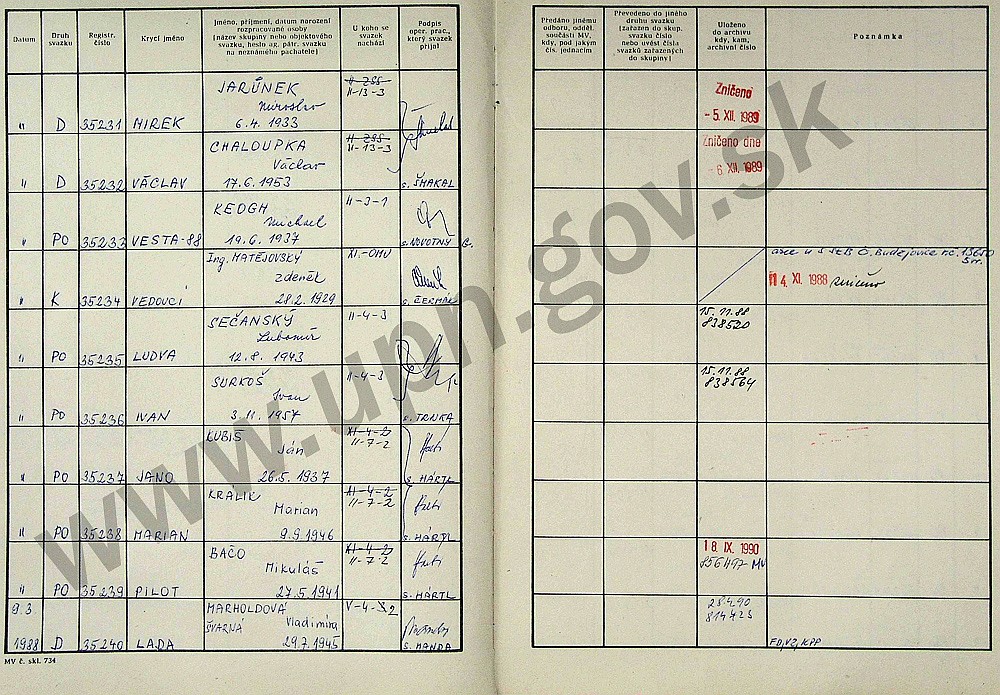 Datum
Druh
svazku
Registr.
číslo
Krycí jméno
Jméno, příjmení, datum narození
rozpracované osoby
(název skupiny nebo objektového
svazku, heslo ag. pátr. svazku
na neznámého pachatele)
U koho se
svazek
nachází
Podpis
oper. prac.,
který svazek
přijal
Předáno jinému
odboru, odděl.
součásti MV,
kdy, pod jakým
čís. jednacím
Převedeno do jiného
druhu svazku
(zařazen do skup.
svazku číslo
nebo uvést čísla
svazků zařazených
do skupiny)
Uloženo
do archivu
kdy, kam,
archivní číslo
Poznámka
JARŮNEK
Miroslav
" D 35231 MIREK 6.4. 1933
II-13-3
Zničeno
- 5. XII. 1989
CHALOUPKA
Václav
" D 35232 VÁCLAV 17.6.1953
II-13-3
s. ŠMAKAL
Zničeno dne
- 6 XII. 1989
KEOGH
Michael
" PO 35233 VESTA-88 19.6.1937
II-3-1
s. NOVOTNÝ
Ing. MATĚJOVSKÝ
Zdeněk
" K 35234 VEDOUCÍ 28.2.1929
XI.-OMV
s. ČERMÁK
Č. Budějovice
4 XI. 1988 zničeno
SEČANSKÝ
Lubomír
" PO 35235 LUDVA 12.8.1943
II-4-3
15.11.88
838520
SURKOŠ
Ivan
" PO 35236 IVAN 3.11.1957
II-4-3
s. TRNKA
15.11.88
838564
KUBIŠ
Ján
" PO 35237 JANO 26.5.1937
XI-4-2
II-7-2
s. HÁRTL
KRALIK
Marian
" PO 35238 MARIAN 9.9.1946
XI-4-2
II-7-2
s. HÁRTL
BAČO
Mikuláš
" PO 35239 PILOT 27.5.1941
XI-4-2
II-7-2
s. HÁRTL
18. IX. 1990
856497 MV
9.3.
MARHOLDOVÁ
ŠVARNÁ Vladimíra
1988 D 35240 LADA 29.7.1945
s. MANDA
814423
FD,VZ,KPP
MV č. skl. 734
www.upn.gov.sk